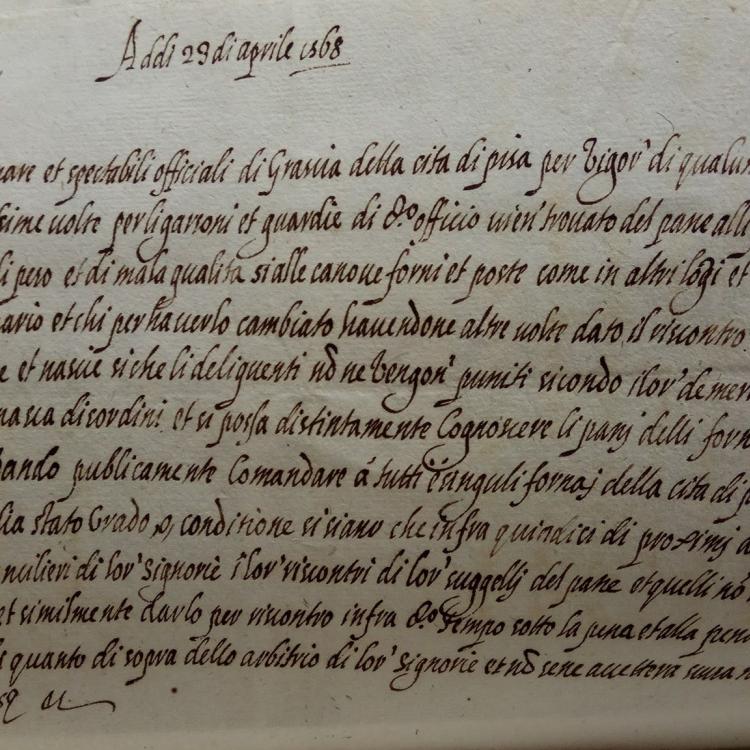 Addi 29 di aprile 1568
et spectabili officiali di Grascia della cita di pisa per Vigor' di
uolte per li garzoni et guardie di d.o officio uien' trouato del pane alli
pero et di mala qualita si alle canoue forni et poste come in altri logi et
et chi per hauerlo cambiato hauendone altre uolte dato il riscontro
et nascie si che li deliquenti nō ne Vengon' puniti sicondo i lor' de
disordini et si possa distintamente Cognoscere li panj delli
publicamente Comandare á tutti e singuli fornaj della cita di
stato Grado o conditione si siano che infra quindici di proximj
di lor' Signorie i lor' riscontri di lor' suggellj del pane et quelli nō
et similmente darlo per riscontro infra d.o tempo sotto la pena et alla
quanto di sopra dello arbitrio di lor' signorie et nō sene accettera scusa